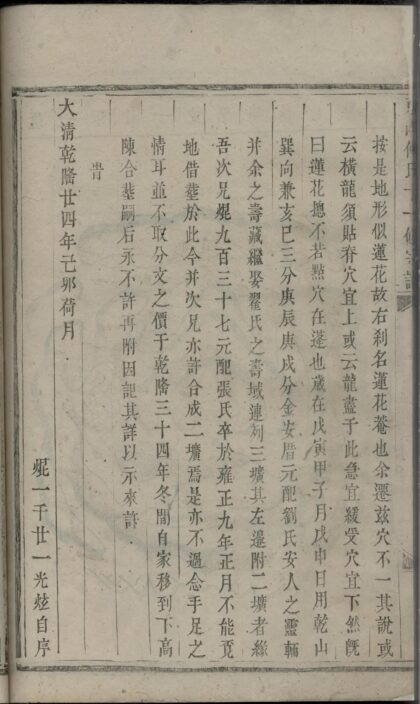 按是地形似蓮花故右刹名蓮花菴也余遷茲穴不一其說或
云橫龍須貼脊穴宜上或云龍盡于此急宜緩受穴宜下然旣
曰蓮花揔不若㸃穴在蓬也歲在戊寅甲子月戊申日用乾山
巽向兼亥巳三分庚辰庚戌分金安厝元配劉氏安人之靈輀
并余之壽藏繼娶翟氏之壽域連列三壙其左邉附二壙者緣
吾次兄焜九百三十七元配張氏卒於雍正九年正月不能覓
地借葬於此今并次兄亦許合成二壙焉是亦不過念手足之
情耳並不取分文之價于乾隆三十四年冬間自家移到下高
陳合葬嗣后永不許再附因記其詳以示來許
旹
大清乾隆廿四年己卯荷月
焜一千廿一光炫自序